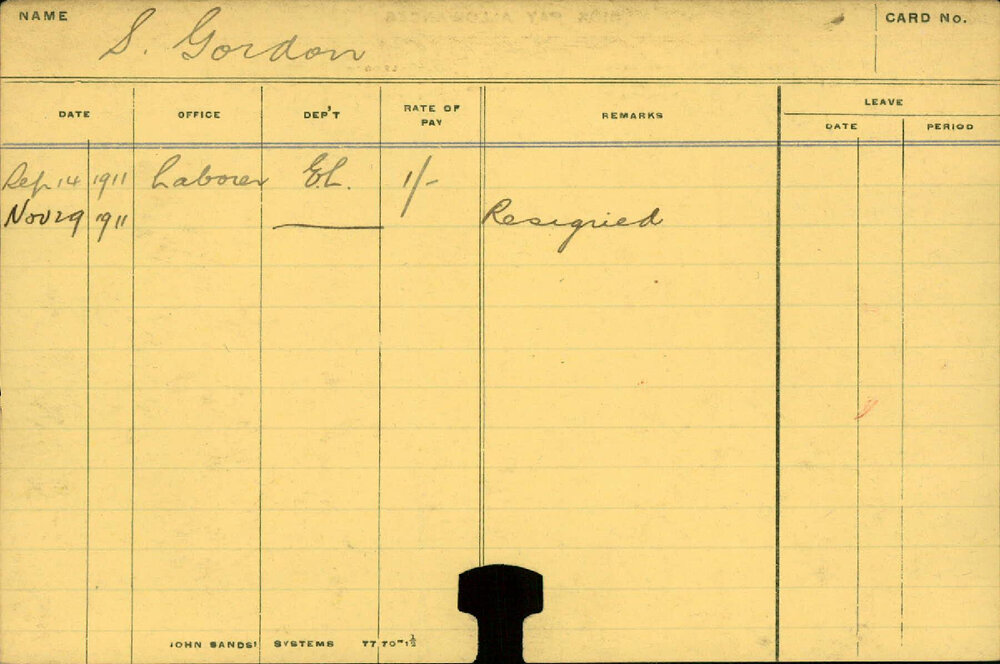 NAME S. Gordon CARD No.
DATE OFFICE DEP'T RATE OF PAY REMARKS LEAVE
DATE PERIOD
Sep 14 1911 Laborer E.L. 1/-
Nov 29 1911 Resigned
JOHN SANDS' SYSTEMS